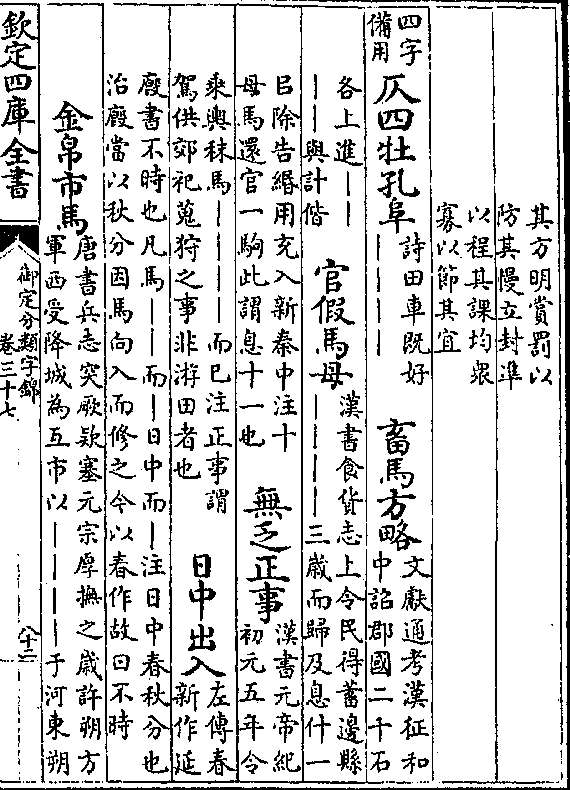 其方明賞罰以
防其慢立封準
以程其課均衆
寡以節其宜
四字
備用
仄四牡孔阜
詩田車既好
————
畜馬方略
文獻通考漢征和
中詔郡國二千石
各上進——
——與計偕
官假馬母
漢書食貨志上令民得蓄邊縣
————三歲而歸及息什一
㠯除告緡用充入新秦中注十
母馬還官一駒此謂息十一也
無乏正事
漢書元帝紀
初元五年令
乘輿秣馬————而已注正事謂
駕供郊祀蒐狩之事非游田者也
日中出入
左傳春
新作延
廐書不時也凡馬——而—日中而—注日中春秋分也
治廐當以秋分因馬向入而修之今以春作故曰不時
金帛市馬
唐書兵志突厥欵塞元宗厚撫之歲許朔方
軍西受降城為互市以————于河東朔
欽定四庫全書
御定分類字錦
卷三十七
十二